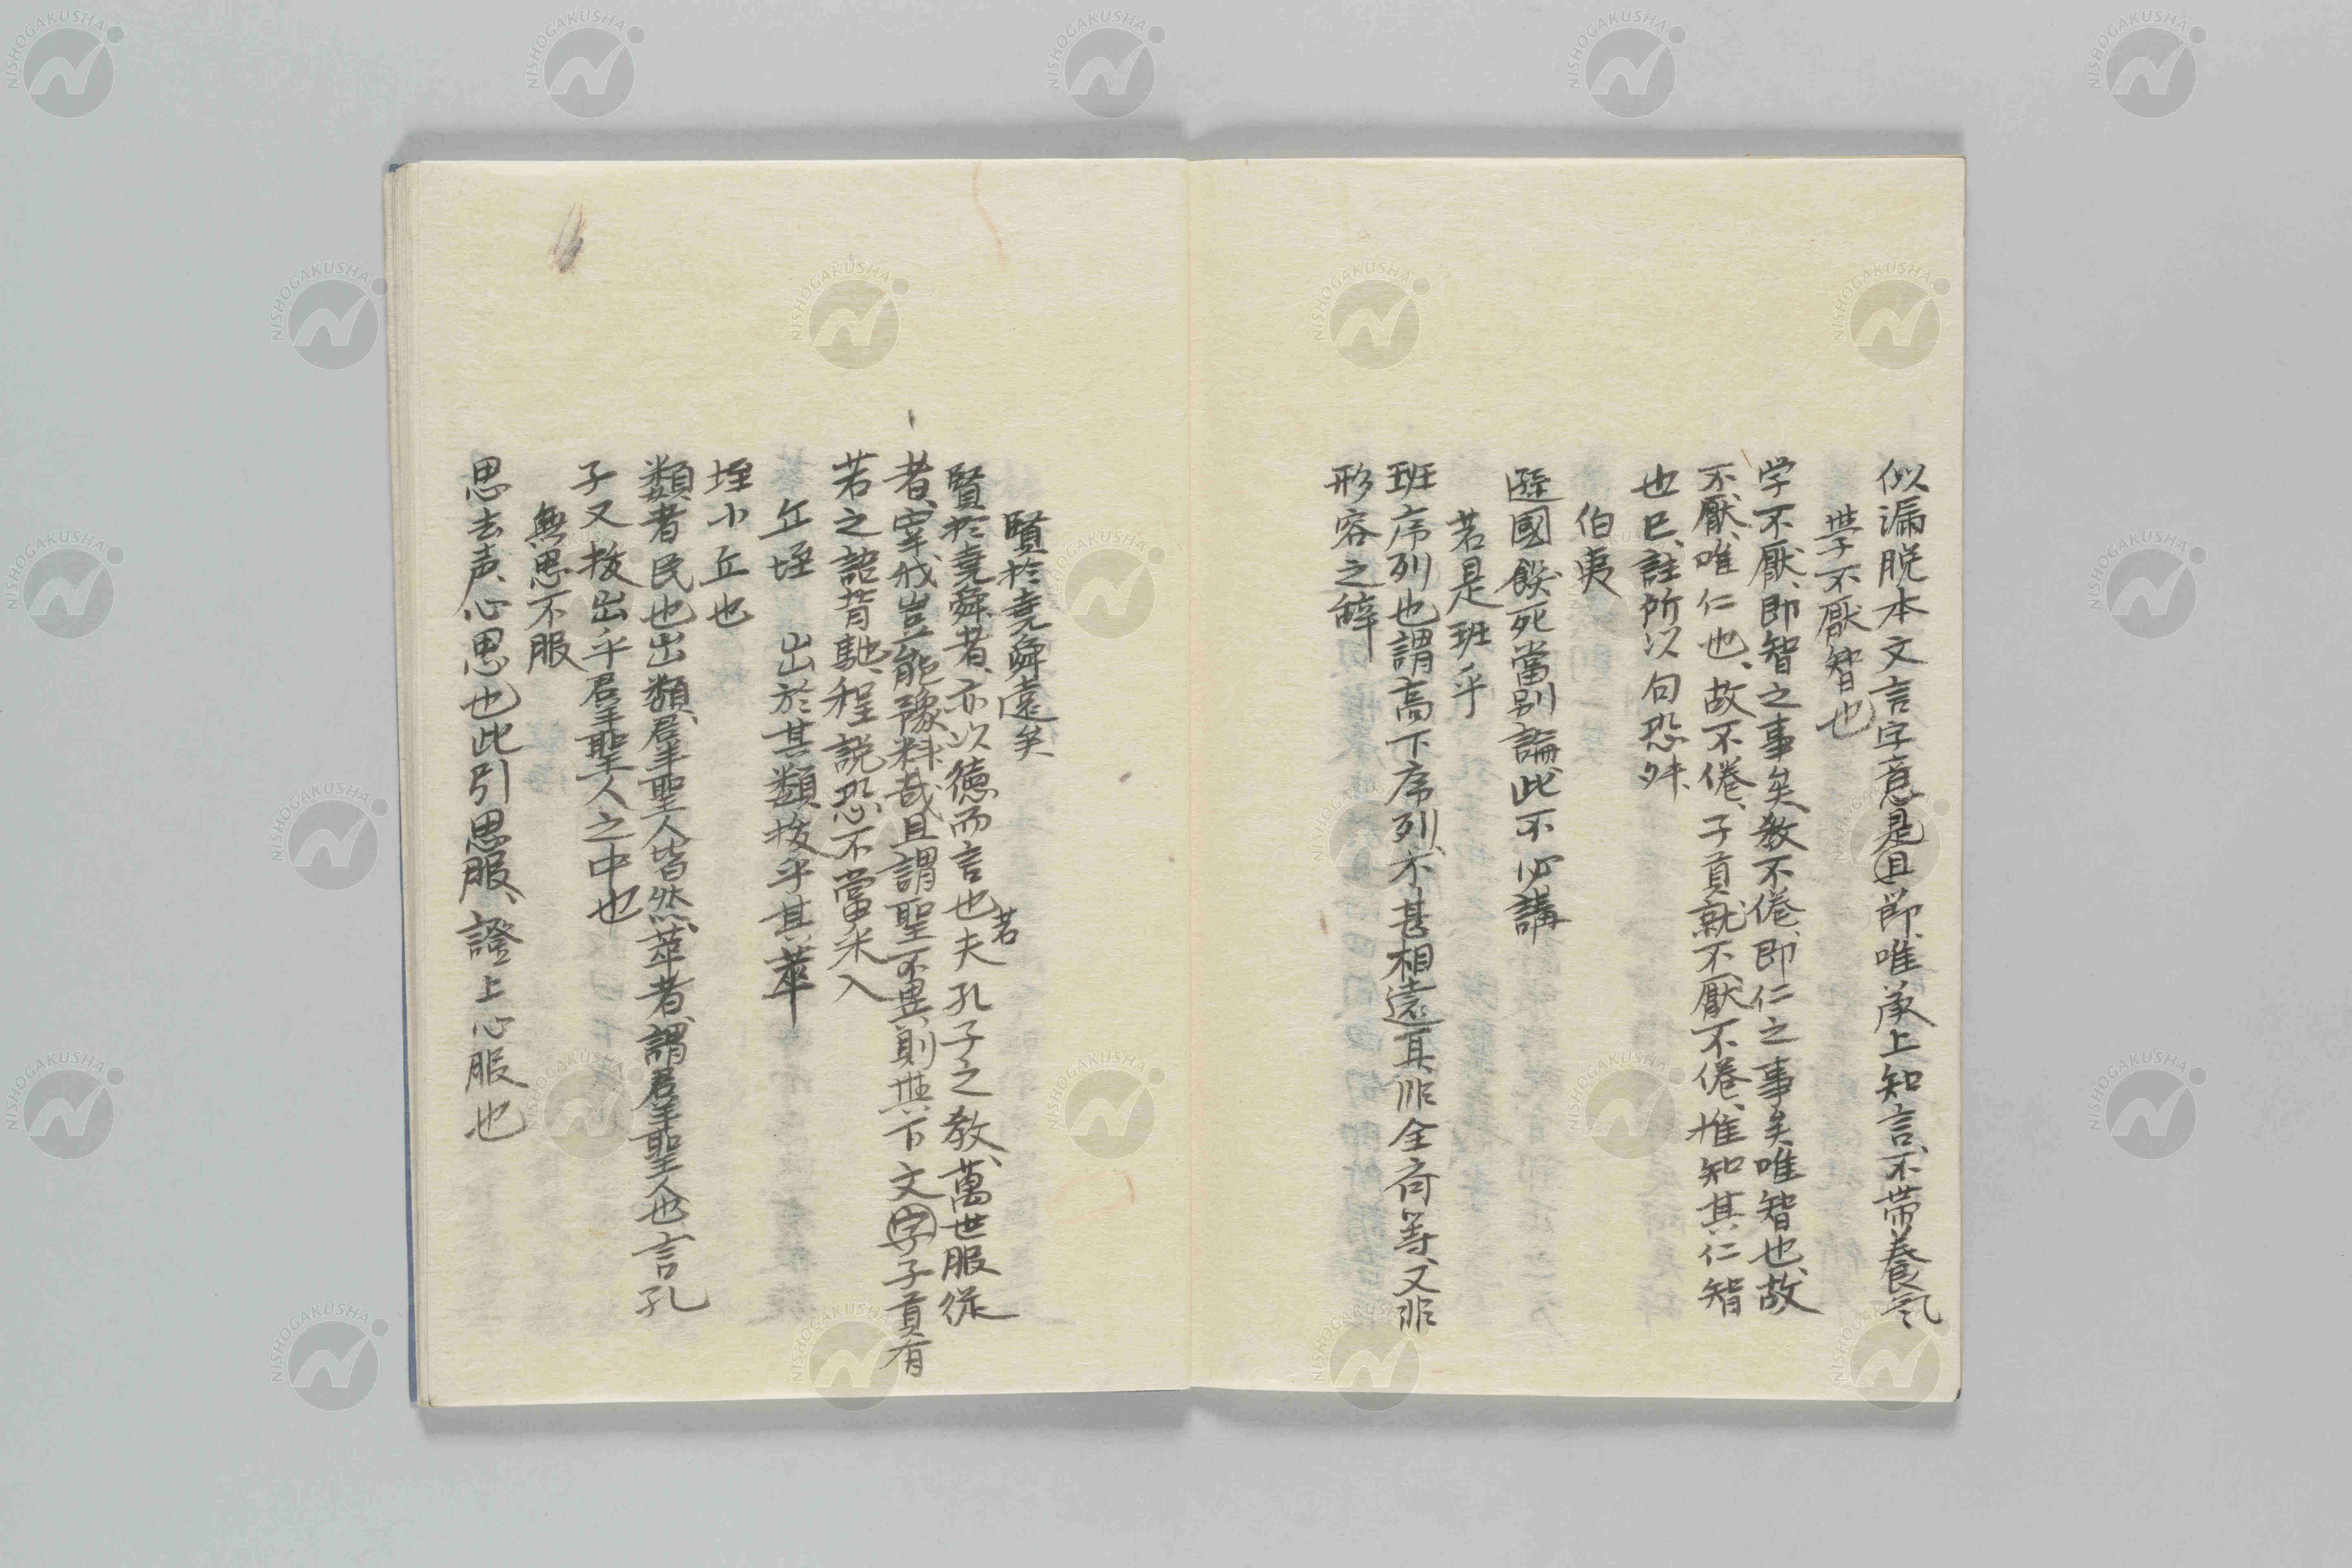 似漏脱本文言字意是且節、唯承上知言、不帯養気
学不厭智也
学不厭、即智之事矣、教不倦、即仁之事矣、唯智也、故
不厭、唯仁也、故不倦、子貢就不厭不倦、推知其仁智
也已、註所以句恐舛
伯夷
遜國餓死當別論、此不必講
若是班乎
班序列也謂高下序列、不甚相遠耳、非全斉等、又非
形容之辞
賢於堯舜遠矣
賢於堯舜者、亦以徳而言也夫孔子之教、萬世服従
若
者、宰我豈能豫料哉且謂聖不異、則與下文字子貢有
若之語背馳、程説恐不當采入
丘垤 出於其類抜乎其萃
垤小丘也
類者民也出類、群聖人皆然、萃者、謂群聖人也言孔
子又抜出乎群聖人之中也
無思不服
思去声、心思也此引思服、證上心服也
NISHOGAKUSHA